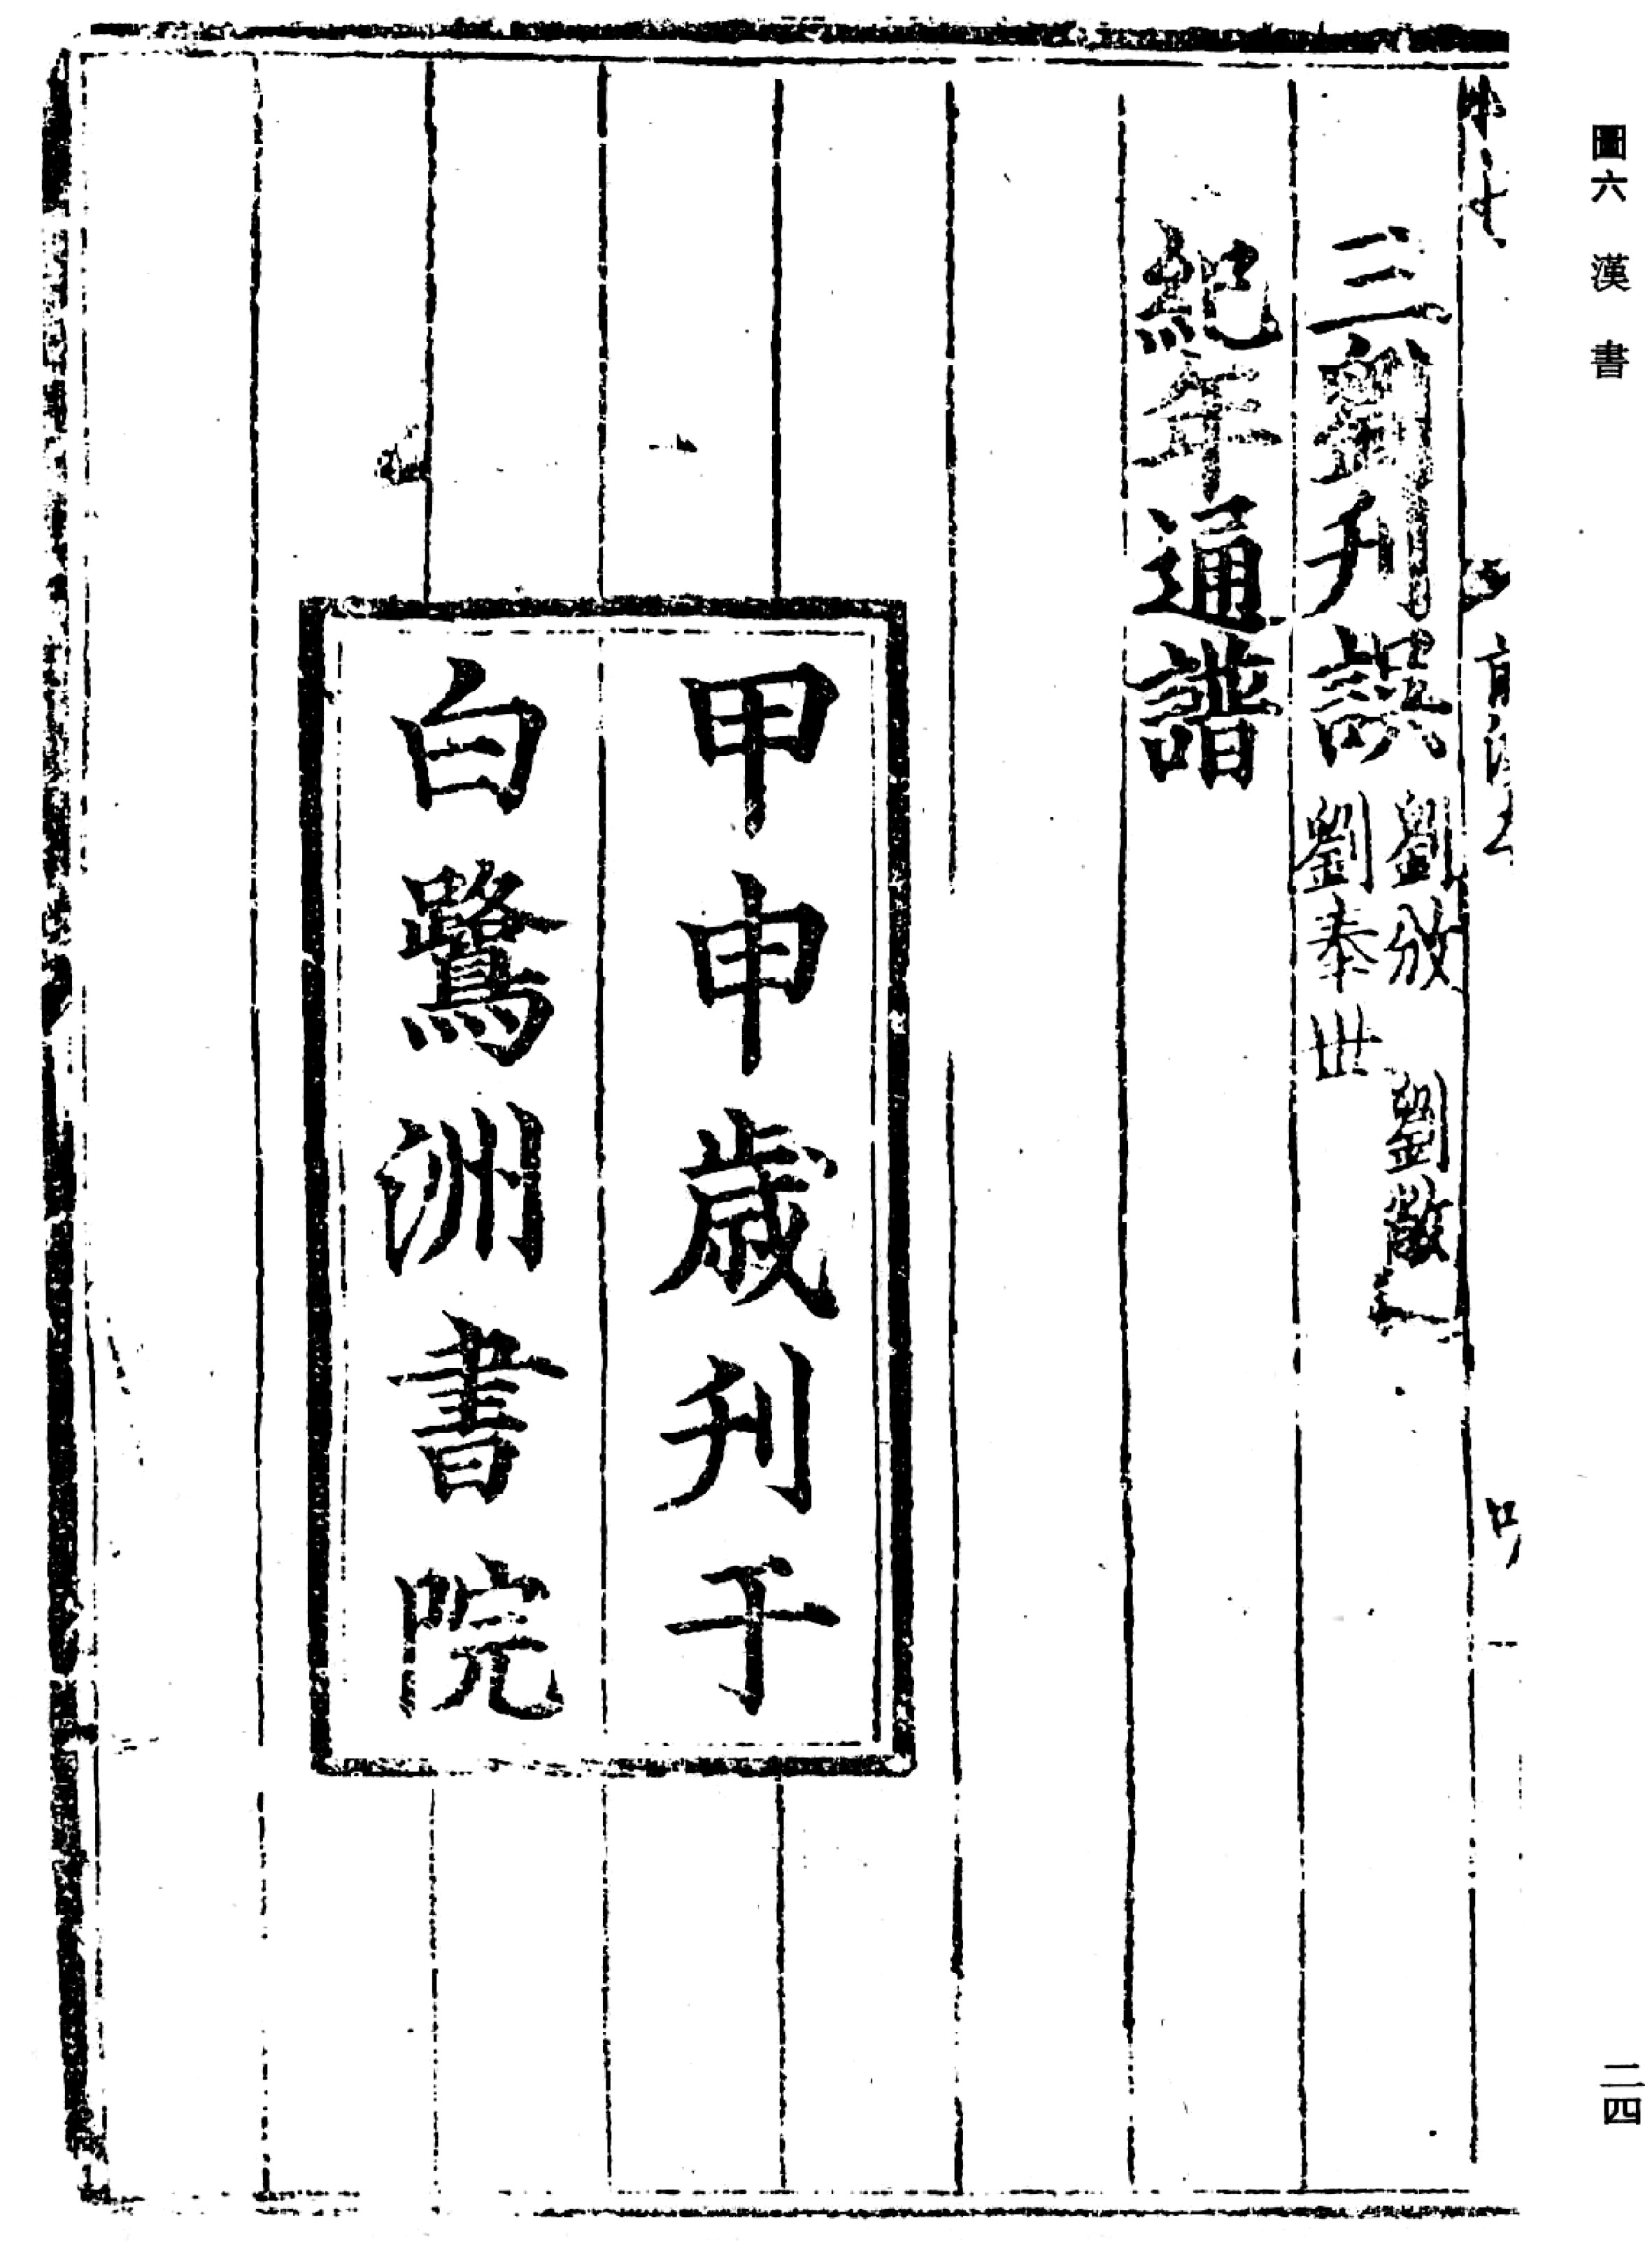 圖六　漢書
二四
三劉刊誤 劉攽　劉敞
劉奉世
紀年通譜
甲申歲刊于
白鷺洲書院